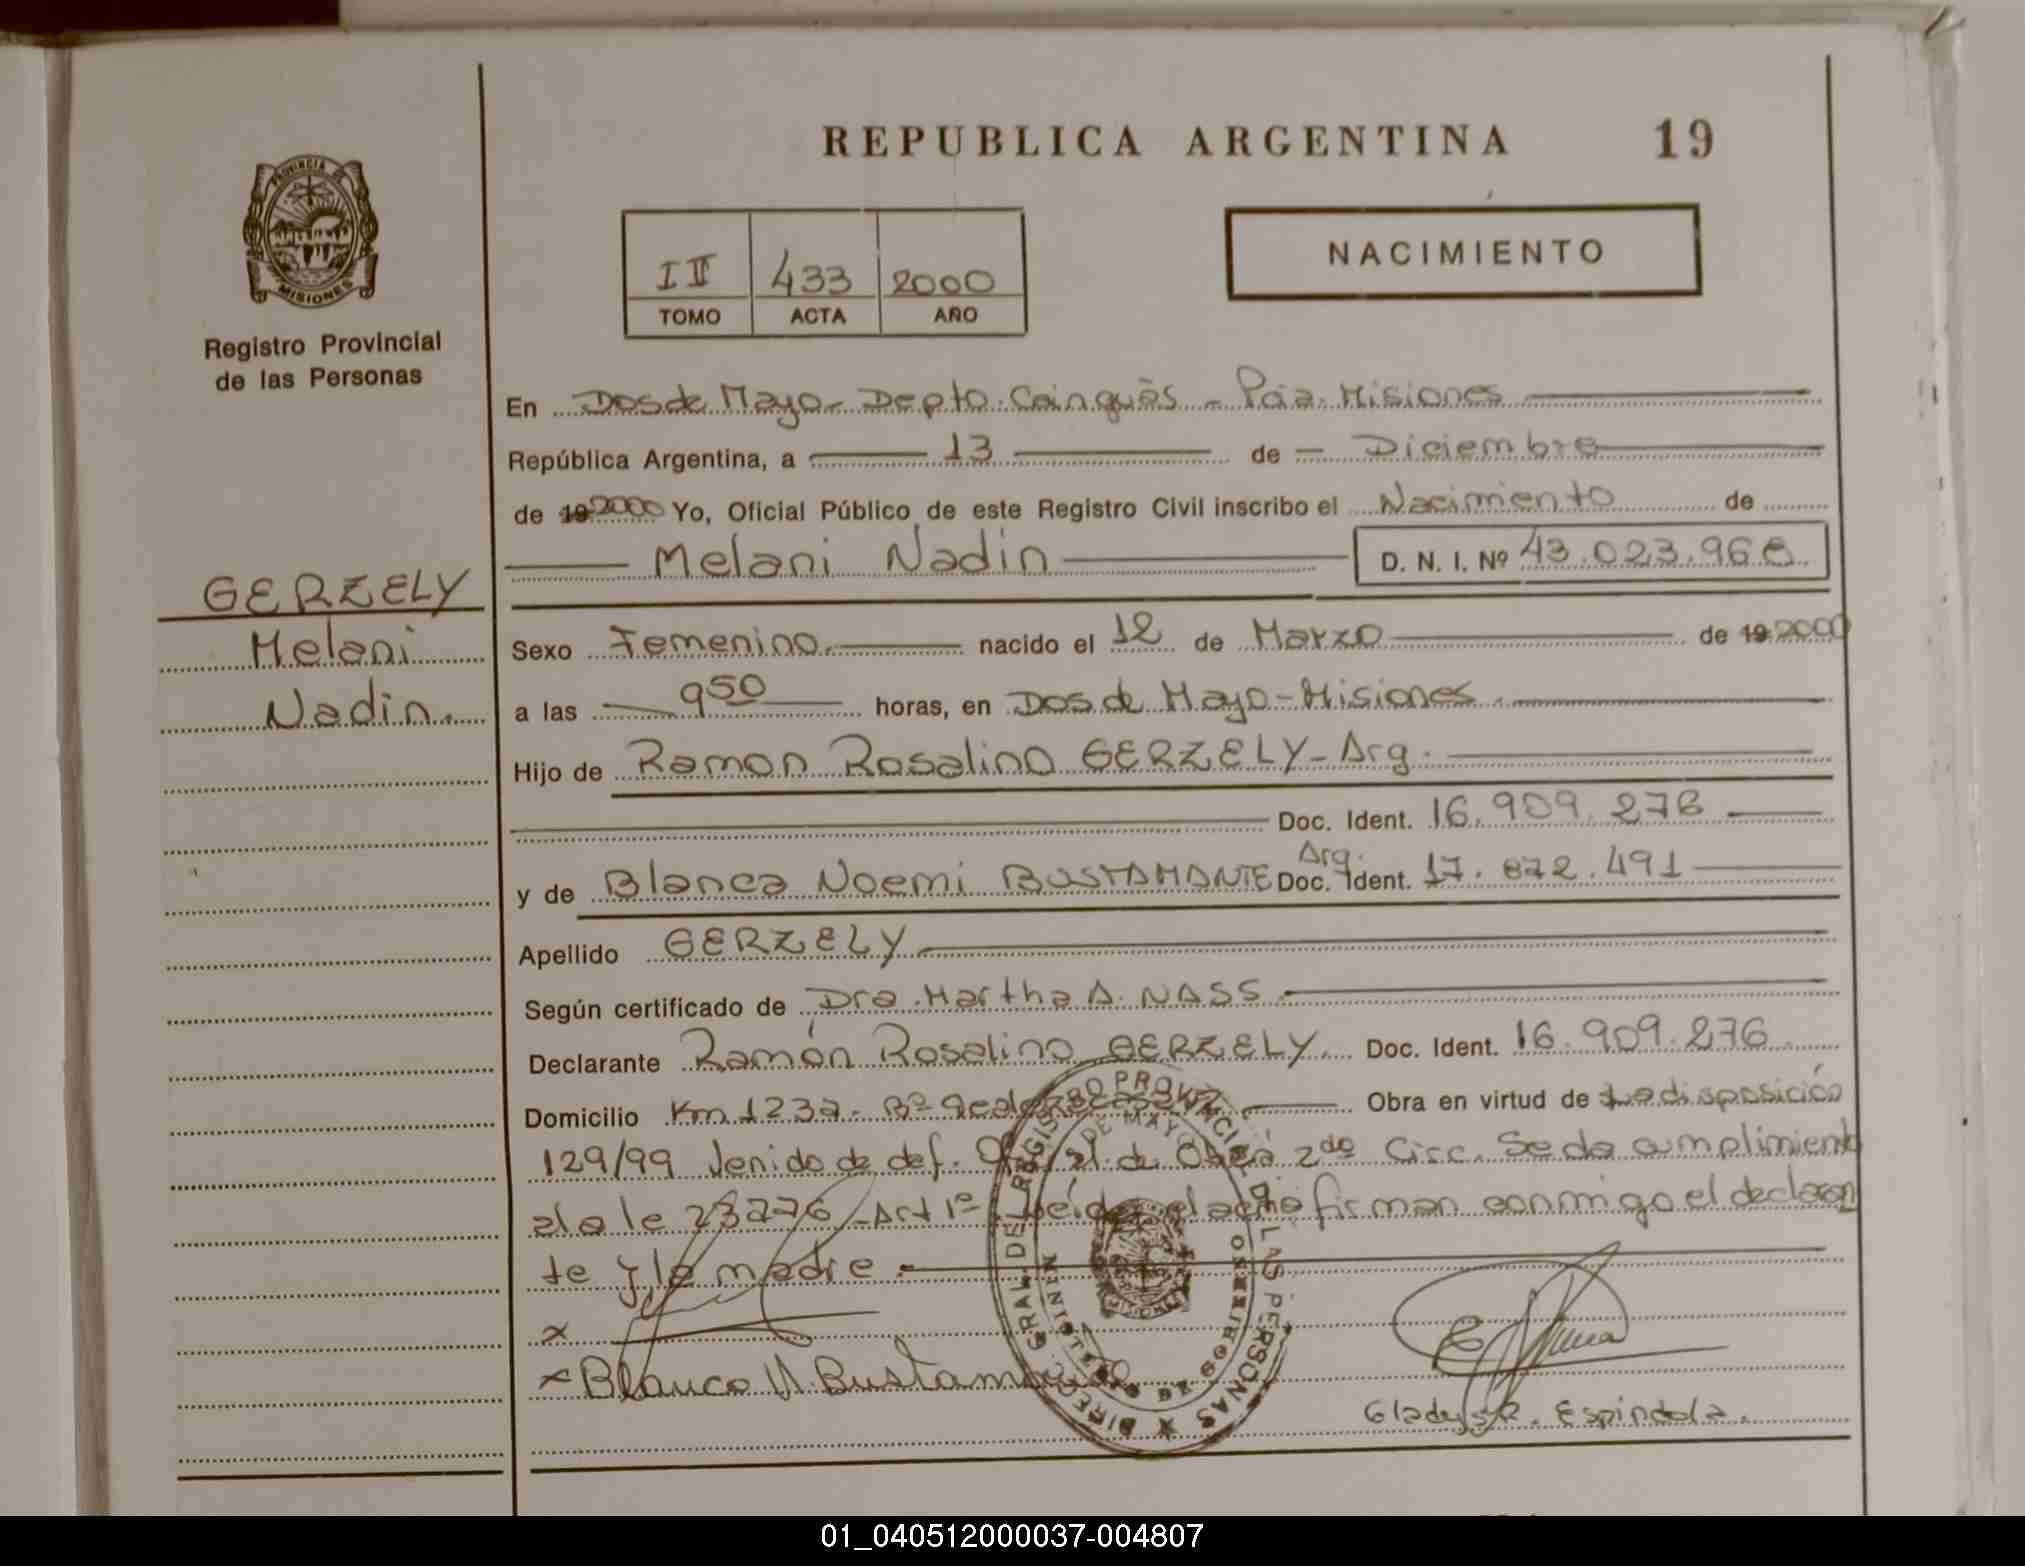 REPUBLICA ARGENTINA 19
PROVINCIA DE
MISIONES
Registro Provincial
de las Personas
NACIMIENTO
III 433 2000
TOMO ACTA AÑO
En Dos de Mayo - Depto. Cainguàs - Pcia. Misiones
República Argentina, a 13 de Diciembre
de 19 2000 Yo, Oficial Público de este Registro Civil inscribo el Nacimiento de
Melani Nadin D. N. I. Nº 43.023.968.
GERZELY
Melani
Nadin.
Sexo Femenino. nacido el 12 de Marzo de 19 2000
a las 9 50 horas, en Dos de Mayo - Misiones.
Hijo de Ramon Rosalino GERZELY - Arg.
Doc. Ident. 16.909.276
y de Blanca Noemi BUSTAMANTE Arg. Doc. Ident. 17.872.491
Apellido GERZELY
Según certificado de Dra. Martha A. NASS.
Declarante Ramón Rosalino GERZELY. Doc. Ident. 16.909.276
Domicilio Km 1237. Bº Obra en virtud de La disposición
129/99 Venido de def. Oficial de Oberá 2da Circ. Se da cumplimiento
a la le 23776 - Art 1º. Leída el acta firman conmigo el declaran
te y la madre.-
x
x Blanca N. Bustamante
DIREC. GRAL. DEL REGISTRO PROVINCIAL DE LAS PERSONAS
MINISTERIO DE GOBIERNO
DE MAYO
MISIONES
Gladys R. Espindola.
01_040512000037-004807